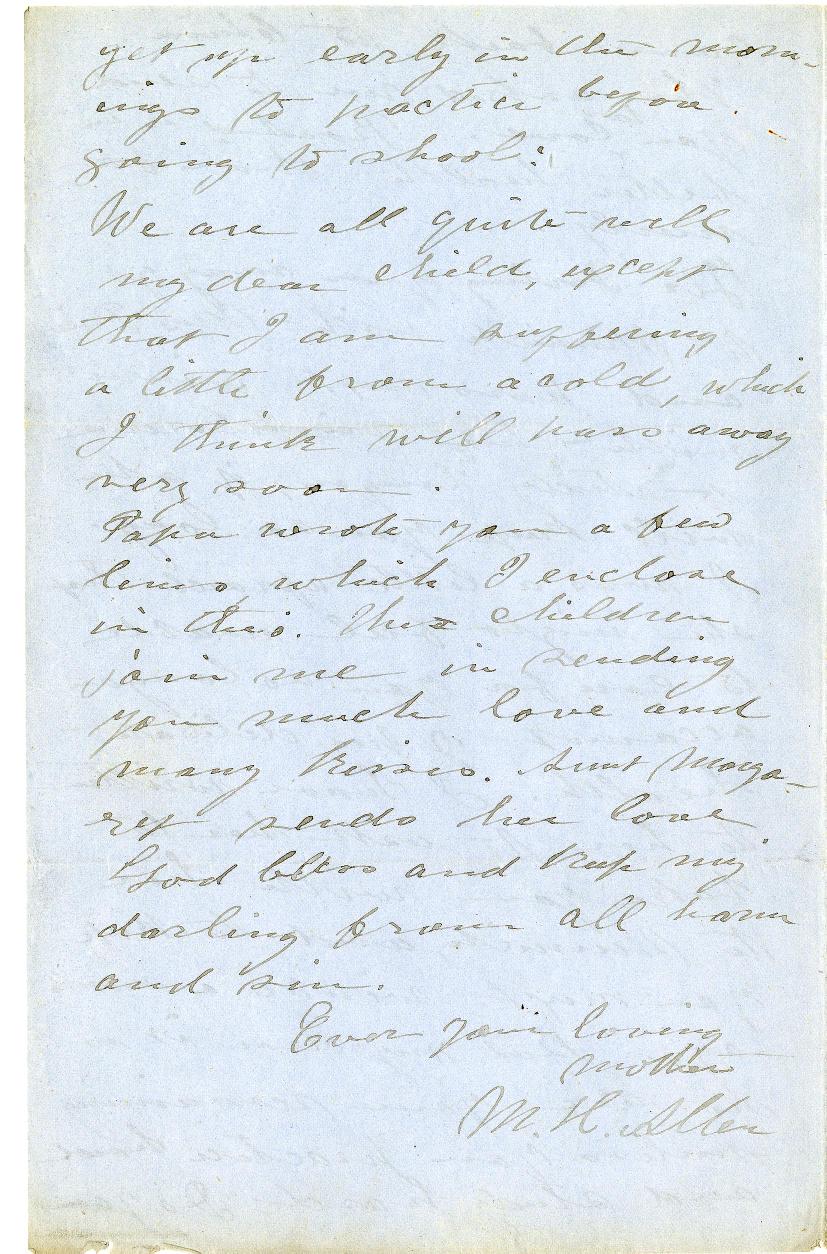 get up early in the morn-
ings to practice before
going to shool.
We are all quite well
my dear child, except
that I am suffering
a little from a cold, which
I think will pass away
very soon.
Papa wrote you a few
lines, which I enclose
in this. The children
join me in sending
you much love and
many kisses. Aunt Marga-
ret sends her love
God bless and keep my
darling from all harm
and sin.
Ever your loving
mother
M. H. Allen